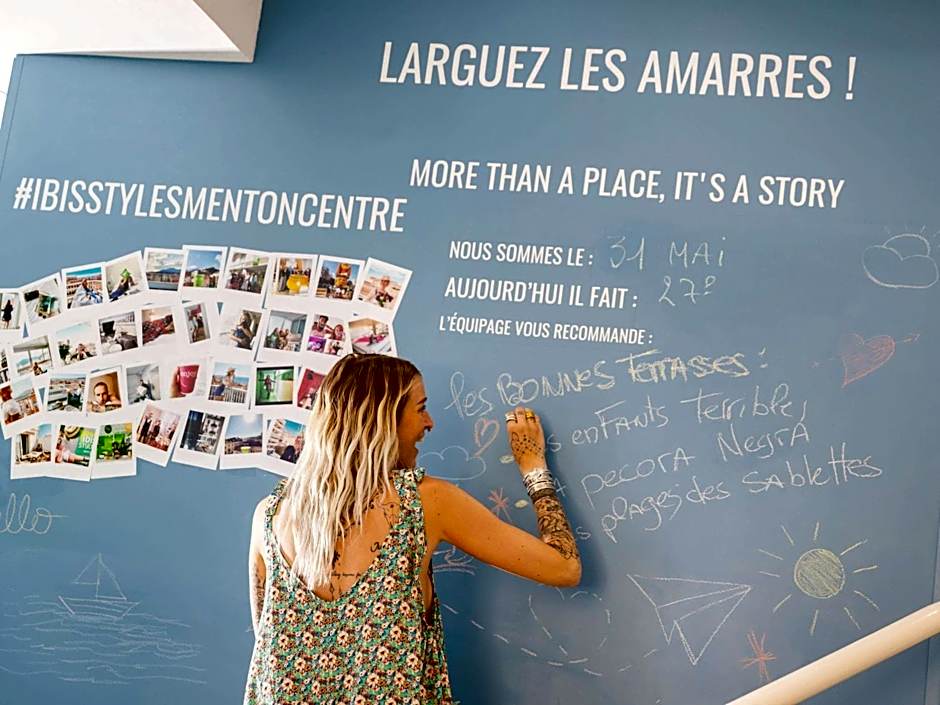 LARGUEZ LES AMARRES !
MORE THAN A PLACE, IT'S A STORY
#IBISSTYLESMENTONCENTRE
NOUS SOMMES LE : 31 MAI
AUJOURD'HUI IL FAIT : 27°
L'ÉQUIPAGE VOUS RECOMMANDE :
les BONNES TERRASSES :
enfants Terribles
pecora Negra
plages des Sablettes
ello